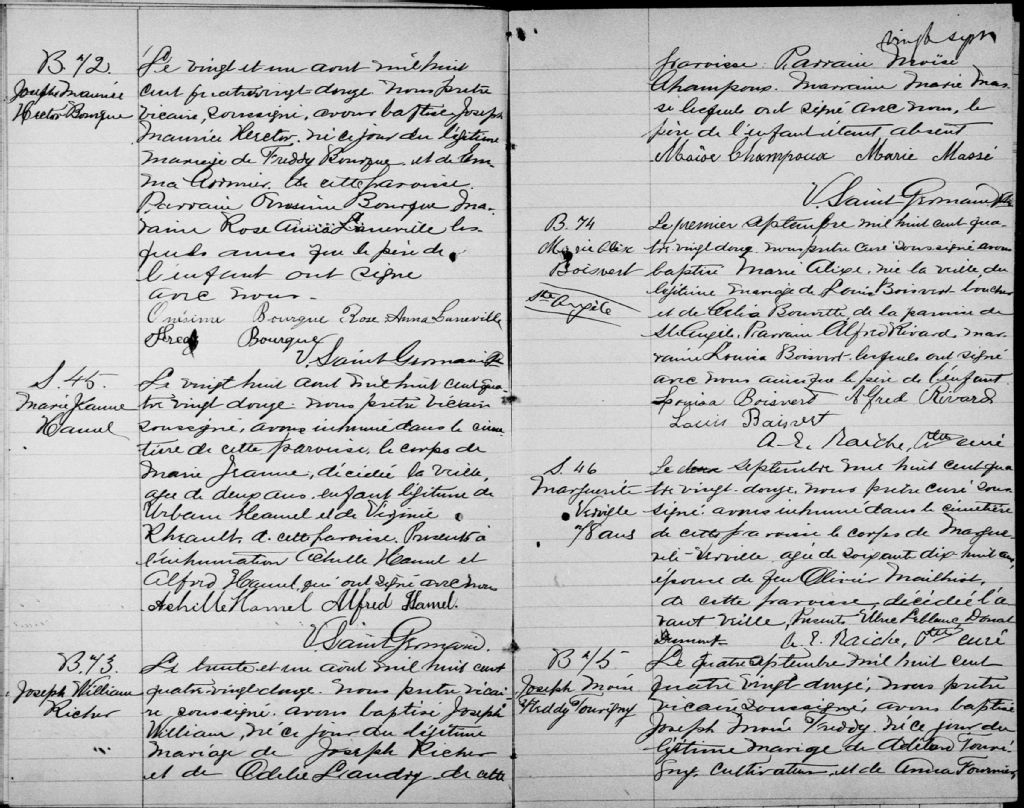 B. 72.
Joseph Maurice
Hector Bourque
Le vingt et un aout mil huit
cent quatre vingt douze nous prêtre
vicaire, soussigné, avons baptisé Joseph
Maurice Hector, né ce jour du légitime
mariage de Freddy Bourque et de Em
ma Cormier, de cette paroisse.
Parrain Onésime Bourque Ma-
raine Rose Anna Laneville les-
quels ainsi que le père de
l'enfant ont signé
avec nous.
Onésime Bourque Rose Anna Laneville
Fred Bourque
V. Saint Germain
S. 45.
Marie Jeanne
Hamel
Le vingt huit aout mil huit cent qua-
tre vingt douze nous prêtre vicaire
soussigné, avons inhumé dans le cime-
tière de cette paroisse le corps de
Marie Jeanne, décédée la veille,
agée de deux ans enfant légitime de
Urbain Hamel et de Virginie
Rheault de cette paroisse. Présents à
l'inhumation Achille Hamel et
Alfred Hamel qui ont signé avec nous
Achille Hamel Alfred Hamel.
V. Saint Germain.
B. 73.
Joseph William
Richer
Le trente et un aout mil huit cent
quatre vingt douze nous prêtre vicai-
re soussigné avons baptisé Joseph
William, né ce jour du légitime
mariage de Joseph Richer
et de Odelie Landry de cette
vingt sept
paroisse Parrain Moïse
Champoux. Marraine Marie Mas-
sé lesquels ont signé avec nous, le
père de l'enfant étant absent
Moïse Champoux Marie Massé
V. Saint Germain
B. 74
Marie Alix
Boisvert
Ste Angèle
Le premier septembre mil huit cent qua-
tre vingt douze nous prêtre curé soussigné avons
baptisé Marie Alixe, née la veille du
légitime mariage de Louis Boisvert boucher
et de Célia Bouvette de la paroisse de
St Angèle. Parrain Alfred Rivard mar-
raine Louisa Boisvert lesquels ont signé
avec nous ainsi que le père de l'enfant.
Louisa Boisvert Alfred Rivard
Louis Boisvert
A. E. Raiche, Ptre curé
S. 46
Marguerite
Verville
78 ans
Le deux septembre mil huit cent qua-
tre vingt-douze, nous prêtre curé sous-
signé avons inhumé dans le cimetière
de cette paroisse le corps de Margue-
rite Verville agée de soixant dix-huit ans
épouse de feu Olivier Mailhiot,
de cette paroisse, décédée l'a-
vant veille, Présents Leblanc Donat
Dumont A. E. Raiche, Ptre curé
B. 75
Joseph Moïse
Freddy Tourigny
Le quatre septembre mil huit cent
quatre vingt douze, nous prêtre
vicaire soussigné, avons baptisé
Joseph Moïse Freddy né ce jour du
légitime mariage de Adélard Touri-
gny cultivateur et de Anna Fournier,